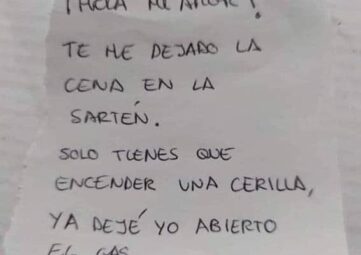 ¡HOLA MI AMOR!
TE HE DEJADO LA
CENA EN LA
SARTÉN.
SOLO TIENES QUE
ENCENDER UNA CERILLA,
YA DEJÉ YO ABIERTO
EL GAS